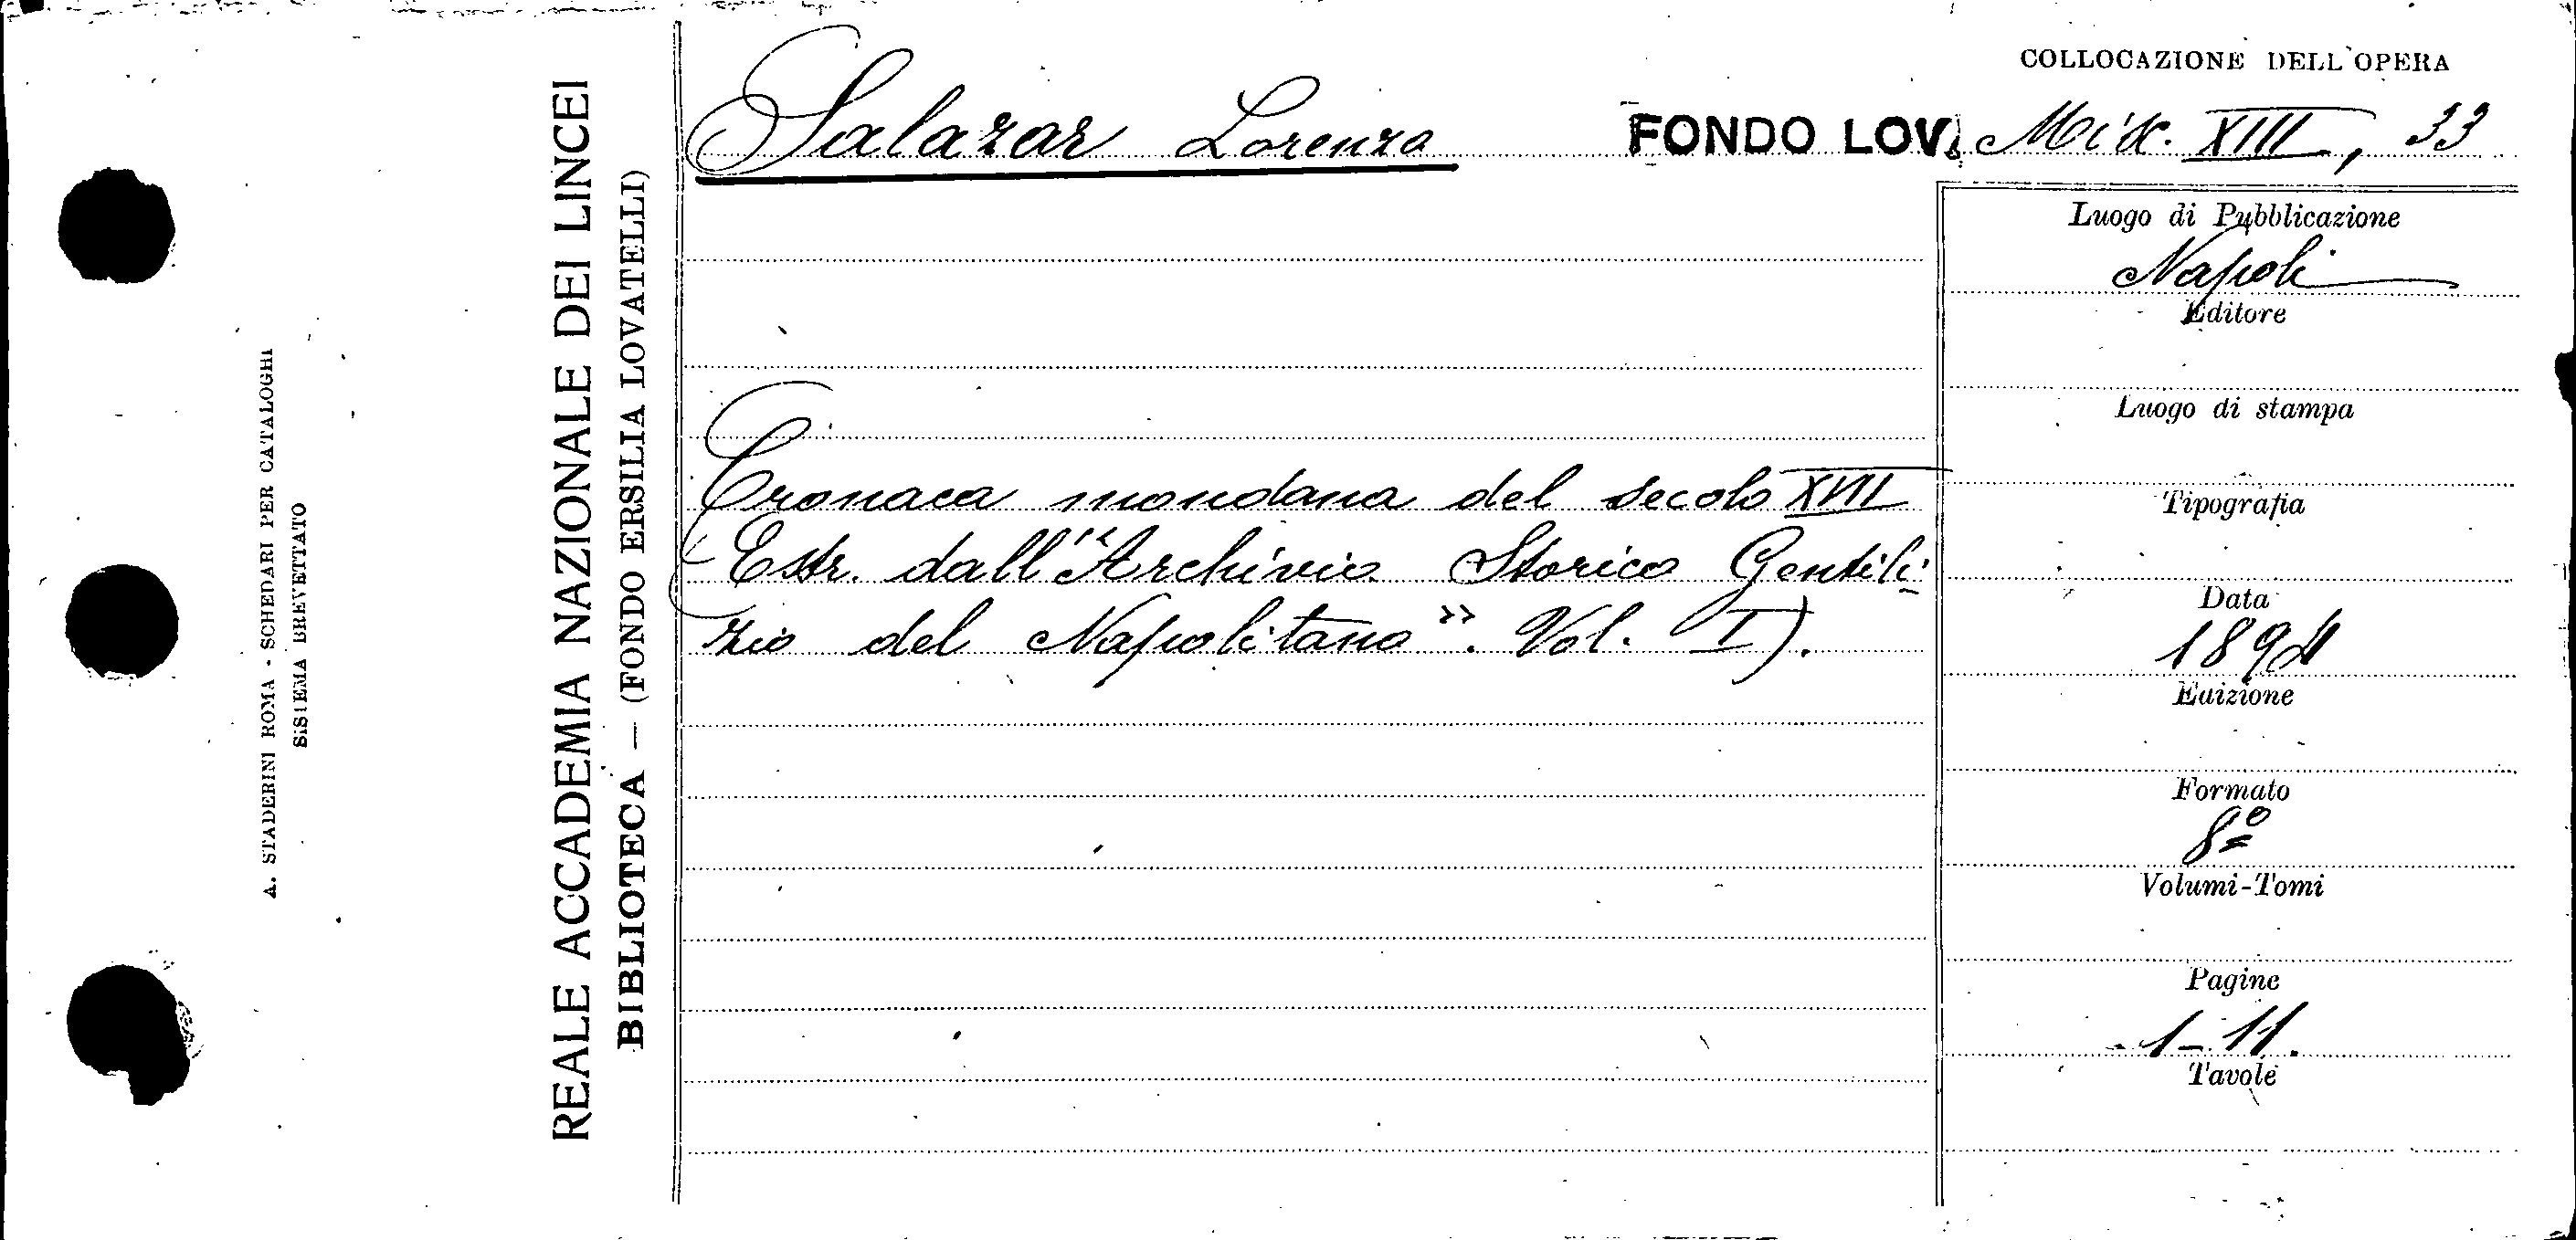 COLLOCAZIONE DELL'OPERA
Salazar Lorenzo
FONDO LOV. Misc. XIII, 33
Cronaca mondana del secolo XVII
(Estr. dall' "Archivio Storico Gentili-
zio del Napolitano". Vol. I).
Luogo di Pubblicazione
Napoli
Editore
Luogo di stampa
Tipografia
Data
1894
Edizione
Formato
8º
Volumi-Tomi
Pagine
1-11.
Tavole
REALE ACCADEMIA NAZIONALE DEI LINCEI
BIBLIOTECA — (FONDO ERSILIA LOVATELLI)
A. STADERINI ROMA - SCHEDARI PER CATALOGHI
SISTEMA BREVETTATO